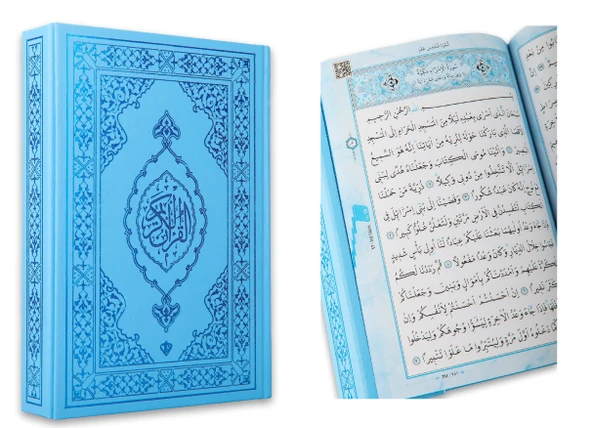 القرآن الكريم
سُورَةُ الْاِسْرَاءِ مَكِّيَّةٌ
الرَّحْمٰنِ الرَّحٖيمِ
سُبْحَانَ الَّذٖٓي اَسْرٰى بِعَبْدِهٖ لَيْلاً مِنَ الْمَسْجِدِ الْحَرَامِ اِلَى الْمَسْجِدِ
الْاَقْصَا الَّذٖي بَارَكْنَا حَوْلَهُ لِنُرِيَهُ مِنْ اٰيَاتِنَا اِنَّهُ هُوَ السَّمٖيعُ
الْبَصٖيرُ ﴿١﴾ وَاٰتَيْنَا مُوسَى الْكِتَابَ وَجَعَلْنَاهُ هُدًى لِبَنٖٓي
اِسْرَٓائٖلَ اَلَّا تَتَّخِذُوا مِنْ دُونٖي وَكٖيلاً ﴿٢﴾ ذُرِّيَّةَ مَنْ حَمَلْنَا
مَعَ نُوحٍ اِنَّهُ كَانَ عَبْداً شَكُوراً ﴿٣﴾ وَقَضَيْنَٓا اِلٰى بَنٖٓي اِسْرَٓائٖلَ فِي
الْكِتَابِ لَتُفْسِدُنَّ فِي الْاَرْضِ مَرَّتَيْنِ وَلَتَعْلُنَّ عُلُوًّا كَبٖيراً ﴿٤﴾
فَاِذَا جَٓاءَ وَعْدُ اُو۫لٰيهُمَا بَعَثْنَا عَلَيْكُمْ عِبَاداً لَنَٓا اُو۬لٖي بَأْسٍ شَدٖيدٍ
فَجَاسُوا خِلَالَ الدِّيَارِ وَكَانَ وَعْداً مَفْعُولاً ﴿٥﴾ ثُمَّ رَدَدْنَا لَكُمُ
الْكَرَّةَ عَلَيْهِمْ وَاَمْدَدْنَاكُمْ بِاَمْوَالٍ وَبَنٖينَ وَجَعَلْنَاكُمْ
اَكْثَرَ نَفٖيراً ﴿٦﴾ اِنْ اَحْسَنْتُمْ اَحْسَنْتُمْ لِاَنْفُسِكُمْ وَاِنْ
فَلَهَا فَاِذَا جَٓاءَ وَعْدُ الْاٰخِرَةِ لِيَسُٓؤُ۫ا وُجُوهَكُمْ وَلِيَدْخُلُوا
دَخَلُوهُ اَوَّلَ مَرَّةٍ وَلِيُتَبِّرُوا مَا عَلَوْا تَتْبٖيراً ﴿٧﴾